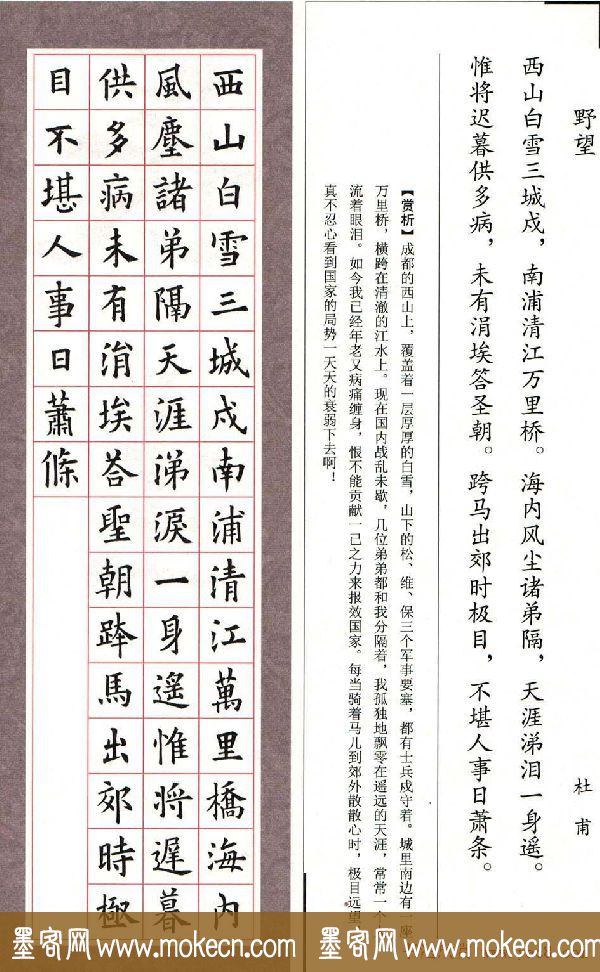 野望
杜甫
西山白雪三城戍，南浦清江万里桥。海内风尘诸弟隔，天涯涕泪一身遥。
惟将迟暮供多病，未有涓埃答圣朝。跨马出郊时极目，不堪人事日萧条。
【赏析】成都的西山上，覆盖着一层厚厚的白雪，山下的松、维、保三个军事要塞，都有士兵戍守着。城里南边有一座
万里桥，横跨在清澈的江水上。现在国内战乱未歇，几位弟弟都和我分隔着，我孤独地飘零在遥远的天涯，常常一个
流着眼泪。如今我已经年老又病痛缠身，恨不能贡献一己之力来报效国家。每当骑着马儿到郊外散散心时，极目远望
真不忍心看到国家的局势一天天的衰弱下去啊！
西山白雪三城戍南浦清江萬里橋海内
風塵諸弟隔天涯涕淚一身遙惟將遲暮
供多病未有涓埃荅聖朝跨馬出郊時極
目不堪人事日蕭條
墨客网 www.mokecn.com 墨客网 www.mokecn.com